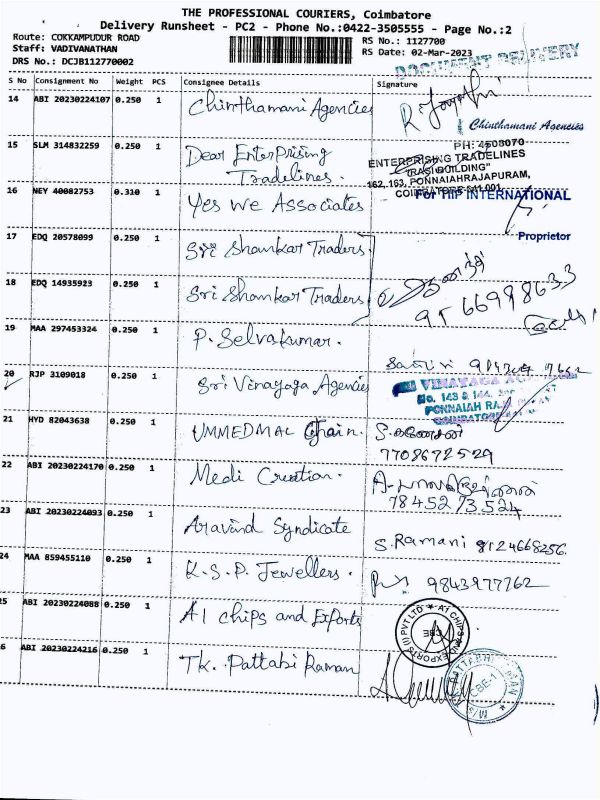 THE PROFESSIONAL COURIERS, Coimbatore
Delivery Runsheet - PC2 - Phone No.:0422-3505555 - Page No.:2
Route: COKKAMPUDUR ROAD
Staff: VADIVANATHAN
DRS No.: DCJB112770002
RS No.: 1127700
RS Date: 02-Mar-2023
DOCUMENT DELIVERY
S No Consignment No Weight PCS Consignee Details Signature
14 ABI 20230224107 0.250 1 Chinthamani Agencies
Chinthamani Agencies
15 SLM 314832259 0.250 1 Dear EnterPrising
Tradelines.
PH: 4508070
ENTERPRISING TRADELINES
"RASI BUILDING"
162,163, PONNAIAHRAJAPURAM,
COIMBATORE-641 001
16 NEY 40082753 0.310 1 Yes We Associates
For HIP INTERNATIONAL
Proprietor
17 EDQ 20578099 0.250 1 Sri Shankar Traders
18 EDQ 14935923 0.250 1 Sri Shankar Traders
19 MAA 297453324 0.250 1 P. Selvakumar.
20 RJP 3109018 0.250 1 Sri Vinayaga Agencies
VINAYAGA
No. 143 & 144,
PONNAIAH RAJ
COIMBATORE
21 HYD 82043638 0.250 1 UMMEDMAL Chain. S. கணேசன்
7708672529
22 ABI 20230224170 0.250 1 Medi Creation.
78452 73524
23 ABI 20230224093 0.250 1 Aravind Syndicate S. Ramani 8124668256.
24 MAA 859455110 0.250 1 K.S.P. Jewellers. 9843977762
25 ABI 20230224088 0.250 1 A1 chips and Exports
A1 CHIPS AND EXPORTS (I) PVT LTD
CBE
26 ABI 20230224216 0.250 1 TK. Pattabi Raman
PATTABHI RAMAN
CBE-1
M/s